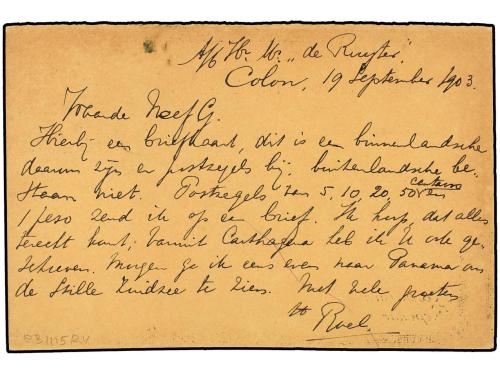 A/b Hr. Ms. „de Ruyter".
Colon, 19 September 1903.
Waarde Neef G.
Hierbij een briefkaart, dit is een binnenlandsche
daarom zijn er postzegels bij, buitenlandsche be-
staan niet. Postzegels van 5, 10, 20, 50 centavos en
1 peso zend ik op een brief. Ik hoop, dat alles
terecht komt; vanuit Carthagena heb ik U ook ge-
schreven. Morgen ga ik eens even naar Panama om
de Stille Zuidzee te zien. Met vele groeten
Roel.